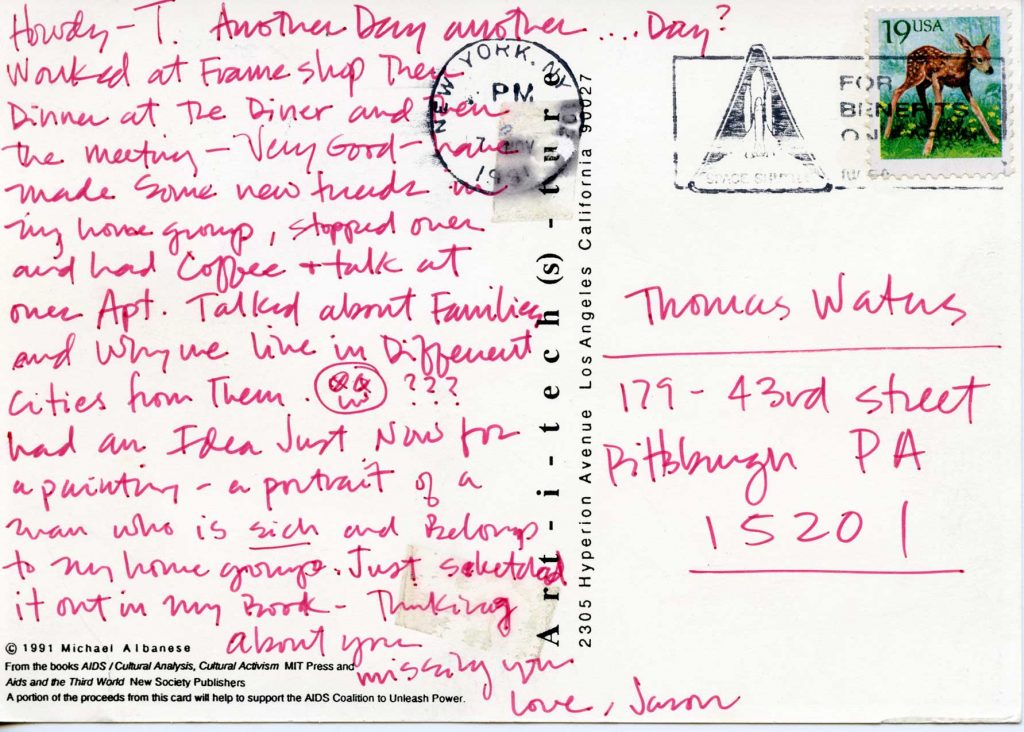 Howdy - T. Another Day another .... Day?
Worked at Frame shop Then
Dinner at the Diner and then
the meeting - Very Good - have
made some new friends in
my home group, stopped over
and had Coffee + talk at
over Apt. Talked about Families
and Why we live in Different
Cities from Them. ???
had an Idea Just Now for
a painting - a portrait of a
man who is sick and Belongs
to my home group. Just sketched
it out in my Book - Thinking
about you
missing you
Love, Jason
© 1991 Michael Albanese
From the books AIDS / Cultural Analysis, Cultural Activism MIT Press and
Aids and the Third World New Society Publishers
A portion of the proceeds from this card will help to support the AIDS Coalition to Unleash Power.
Art-i-tech(s)-ture
2305 Hyperion Avenue Los Angeles California 90027
NEW YORK, NY
PM
NOV
1991
SPACE SHUTTLE
FOR
BENEFITS
19USA
Thomas Waters
179 - 43rd street
Pittsburgh PA
15201